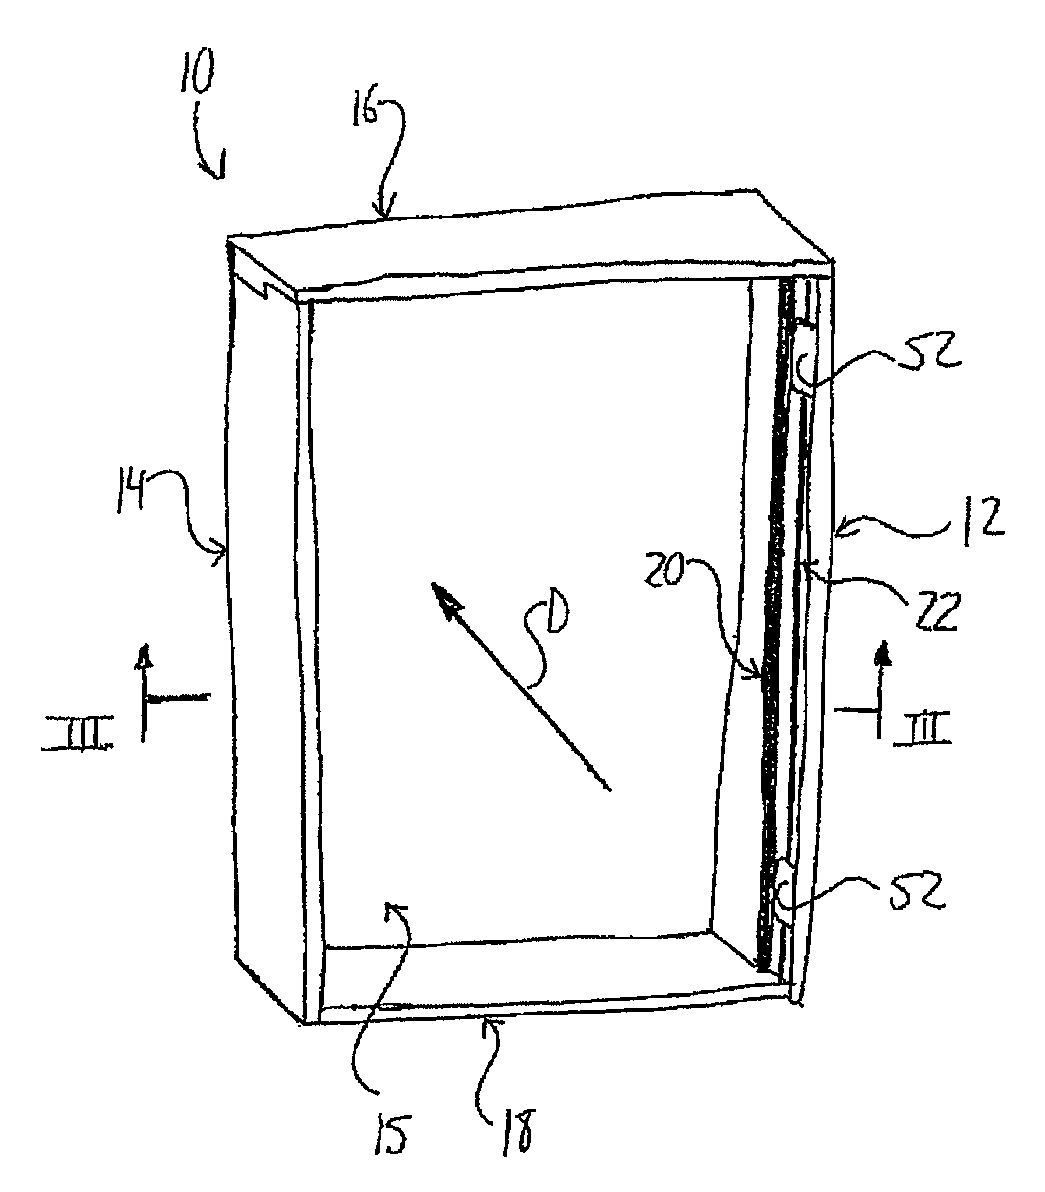 10
16
52
14
12
20
D
22
III
III
52
15
18